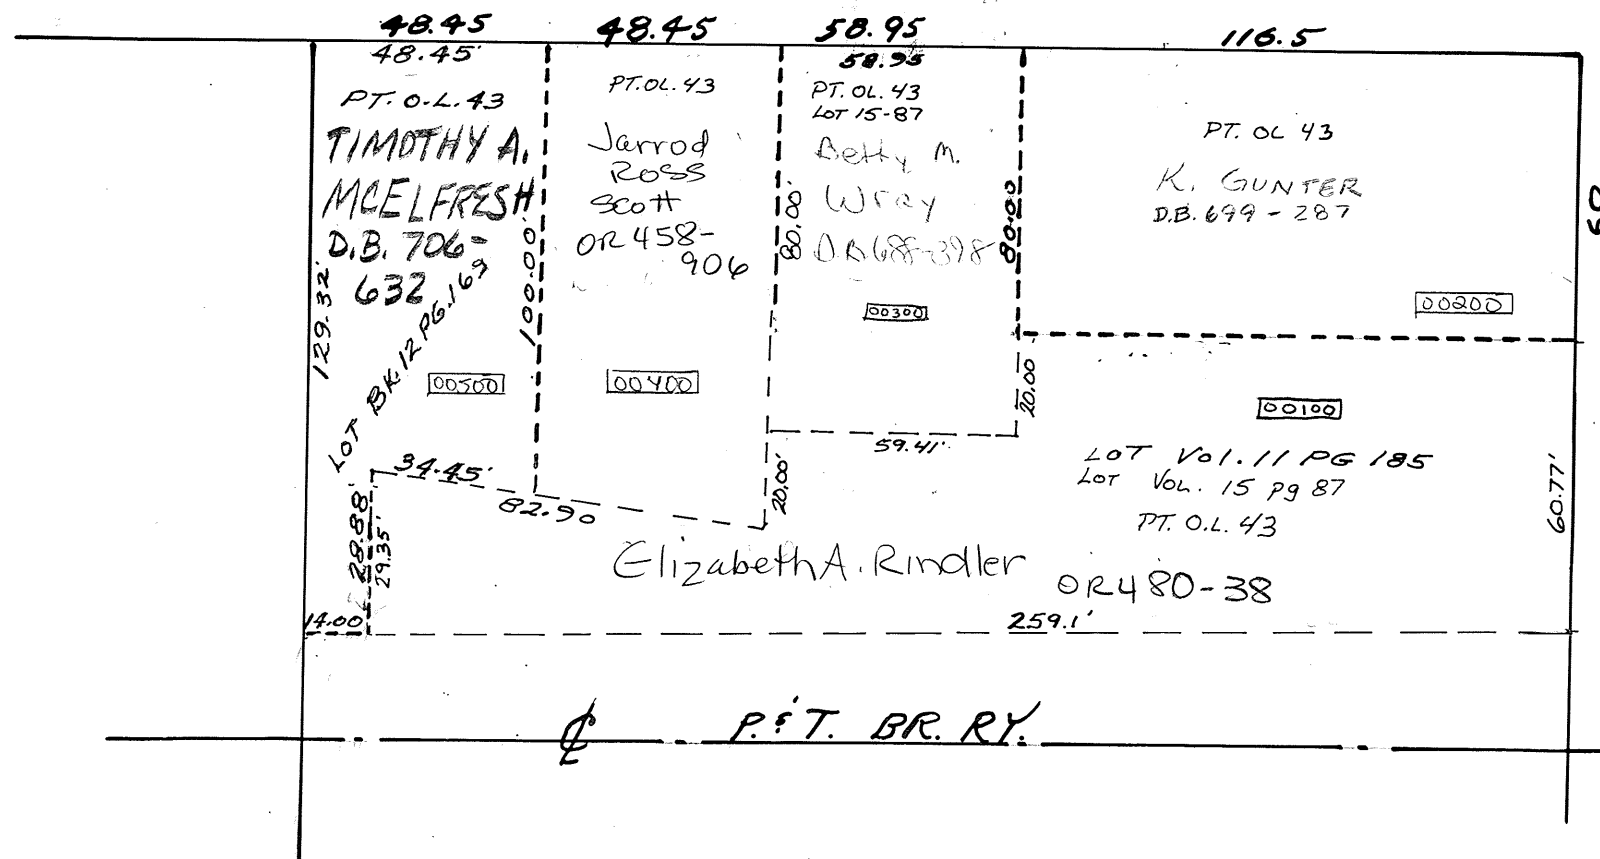 48.45
48.45
58.95
116.5
48.45'
PT. O.L. 43
TIMOTHY A.
MCELFRESH
D.B. 706-
632
LOT BK. 12 PG. 169
129.32'
100.00'
00500
PT. OL. 43
Jarrod
Ross
Scott
OR 458-
906
00400
58.95
PT. OL. 43
LOT 15-87
Betty M.
Wray
80.80'
80.00
00300
PT. OL 43
K. GUNTER
D.B. 699-287
00200
20.00
59.41'
20.00'
00100
LOT Vol. 11 PG 185
LOT VOL. 15 Pg 87
PT. O.L. 43
60.77'
34.45'
82.90
28.88'
29.35'
14.00
Elizabeth A. Rindler
OR 480-38
259.1'
℄ P. & T. BR. RY.